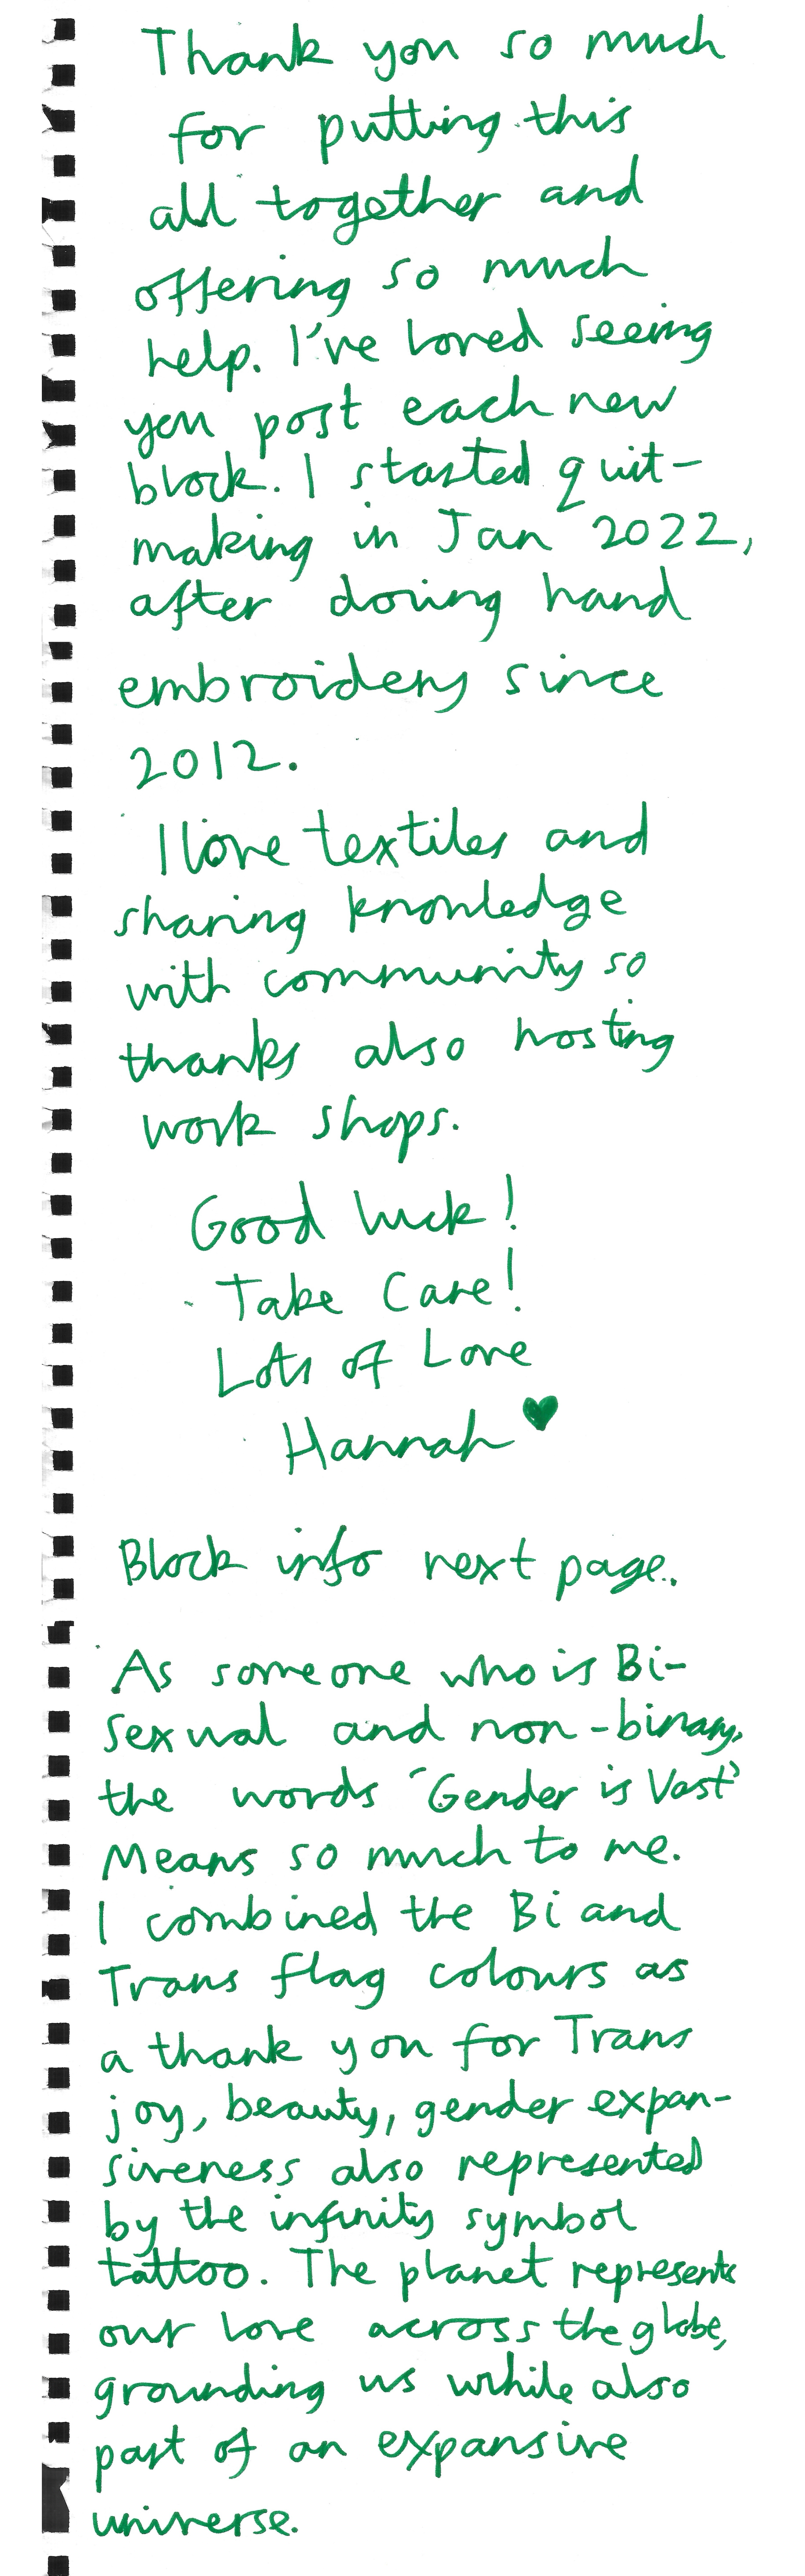 Thank you so much
for putting this
all together and
offering so much
help. I've loved seeing
you post each new
block. I started quit-
making in Jan 2022,
after doing hand
embroidery since
2012.
I love textiles and
sharing knowledge
with community so
thanks also hosting
work shops.
Good luck!
Take Care!
Lots of Love
Hannah ♥
Block info next page.
As someone who is Bi-
sexual and non-binary,
the words 'Gender is Vast'
Means so much to me.
I combined the Bi and
Trans flag colours as
a thank you for Trans
joy, beauty, gender expan-
siveness also represented
by the infinity symbol
tattoo. The planet represents
our love across the globe,
grounding us while also
part of an expansive
universe.